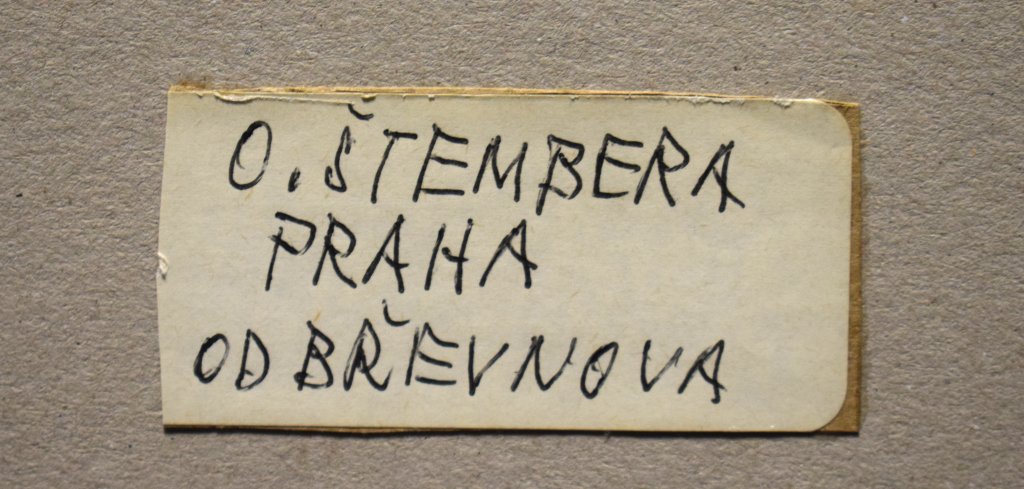 O. ŠTEMBERA
PRAHA
OD BŘEVNOVA